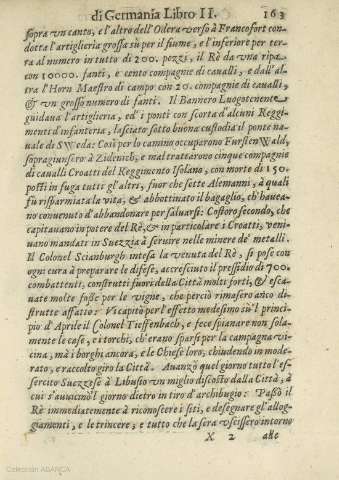 di Germania Libro II. 163
sopra un canto, e l'altro dell'Odera verso à Francofort con-
dotta l'artiglieria grossa sù per il fiume, e l'inferiore per ter-
ra al numero in tutto di 200. pezzi, il Rè da una ripa
con 10000. fanti, e cento compagnie di cavalli, e dall'al-
tra l'Horn Maestro di campo con 20. compagnie di cavalli,
& un grosso numero di fanti. Il Bannero Luogotenente
guidava l'artiglieria, ed i ponti con scorta d'alcuni Reggi-
menti d'infanteria, lasciato sotto buona custodia il ponte na-
uale di SVVeda: Così per lo camino occuparono FurstenVVald,
sopragiunsero à Zidenich, e mal trattarono cinque compagnie
di cavalli Croatti del Reggimento Isolano, con morte di 150.
posti in fuga tutti gl'altri, fuor che sette Alemanni, à quali
fù risparmiata la vita, & abbottinato il bagaglio, ch'havea-
no convenuto d'abbandonare per salvarsi: Costoro secondo, che
capitavano in potere del Rè, & in particolare i Croatti, veni-
uano mandati in Suezzia à servire nelle minere de' metalli.
Il Colonel Scianburgh intesa la venuta del Rè, si pose con
ogni cura à preparare le difese, accresciuto il pressidio di 700.
combattenti, construtti fuori della Città molti forti, & esca-
uate molte fosse per le vigne, che perciò rimasero anco di-
strutte affatto: Vi capitò per l'effetto medesimo sù'l princi-
pio d'Aprile il Colonel Tieffenbach, e fece spianare non sola-
mente le case, e i torchi, ch'erano sparsi per la campagna vi-
cina, mà i borghi ancora, e le Chiese loro, chiudendo in mode-
rato, e raccolto giro la Città. Avanzò quel giorno tutto l'es-
sercito Suezzese à Libusso un miglio discosto dalla Città, à
cui s'auuicinò'l giorno dietro in tiro d'archibugio: Passò il
Rè immediatamente à riconoscere i siti, e desegnare gl'allog-
giamenti, e le trincere, e tutto che la sera uscissero intorno
X 2 alle
Colección ABANCA